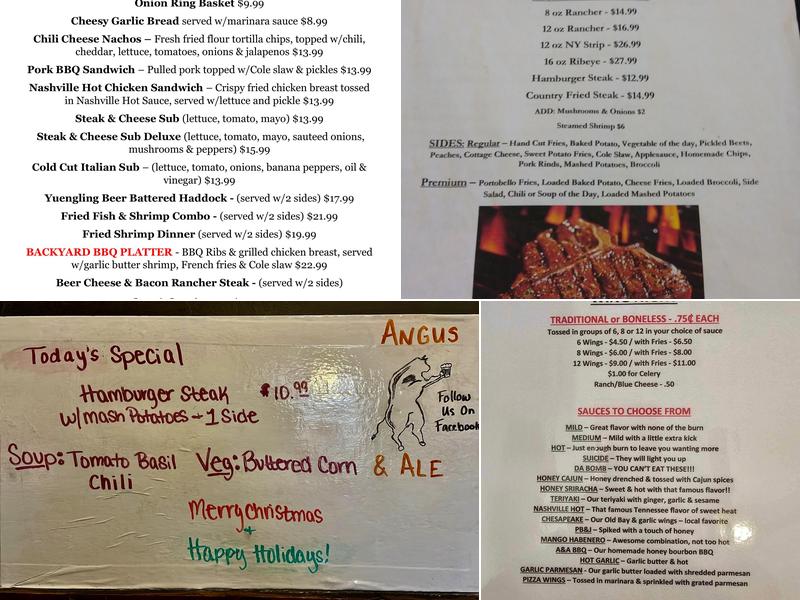 Onion Ring Basket $9.99
Cheesy Garlic Bread served w/marinara sauce $8.99
Chili Cheese Nachos – Fresh fried flour tortilla chips, topped w/chili,
cheddar, lettuce, tomatoes, onions & jalapenos $13.99
Pork BBQ Sandwich – Pulled pork topped w/Cole slaw & pickles $13.99
Nashville Hot Chicken Sandwich – Crispy fried chicken breast tossed
in Nashville Hot Sauce, served w/lettuce and pickle $13.99
Steak & Cheese Sub (lettuce, tomato, mayo) $13.99
Steak & Cheese Sub Deluxe (lettuce, tomato, mayo, sauteed onions,
mushrooms & peppers) $15.99
Cold Cut Italian Sub – (lettuce, tomato, onions, banana peppers, oil &
vinegar) $13.99
Yuengling Beer Battered Haddock - (served w/2 sides) $17.99
Fried Fish & Shrimp Combo - (served w/2 sides) $21.99
Fried Shrimp Dinner (served w/2 sides) $19.99
BACKYARD BBQ PLATTER - BBQ Ribs & grilled chicken breast, served
w/garlic butter shrimp, French fries & Cole slaw $22.99
Beer Cheese & Bacon Rancher Steak - (served w/2 sides)
8 oz Rancher - $14.99
12 oz Rancher - $16.99
12 oz NY Strip - $26.99
16 oz Ribeye - $27.99
Hamburger Steak - $12.99
Country Fried Steak - $14.99
ADD: Mushrooms & Onions $2
Steamed Shrimp $6
SIDES: Regular – Hand Cut Fries, Baked Potato, Vegetable of the day, Pickled Beets,
Peaches, Cottage Cheese, Sweet Potato Fries, Cole Slaw, Applesauce, Homemade Chips,
Pork Rinds, Mashed Potatoes, Broccoli
Premium – Portobello Fries, Loaded Baked Potato, Cheese Fries, Loaded Broccoli, Side
Salad, Chili or Soup of the Day, Loaded Mashed Potatoes
Today's Special
Hamburger Steak $10.99
w/mash Potatoes + 1 Side
Soup: Tomato Basil
Chili
Veg: Buttered Corn
Merry Christmas
+
Happy Holidays!
ANGUS
Follow
Us On
Facebook
& ALE
TRADITIONAL or BONELESS - .75¢ EACH
Tossed in groups of 6, 8 or 12 in your choice of sauce
6 Wings - $4.50 / with Fries - $6.50
8 Wings - $6.00 / with Fries - $8.00
12 Wings - $9.00 / with Fries - $11.00
$1.00 for Celery
Ranch/Blue Cheese - .50
SAUCES TO CHOOSE FROM
MILD – Great flavor with none of the burn
MEDIUM – Mild with a little extra kick
HOT – Just enough burn to leave you wanting more
SUICIDE – They will light you up
DA BOMB – YOU CAN'T EAT THESE!!!
HONEY CAJUN – Honey drenched & tossed with Cajun spices
HONEY SRIRACHA – Sweet & hot with that famous flavor!!
TERIYAKI – Our teriyaki with ginger, garlic & sesame
NASHVILLE HOT – That famous Tennessee flavor of sweet heat
CHESAPEAKE – Our Old Bay & garlic wings – local favorite
PB&J – Spiked with a touch of honey
MANGO HABENERO – Awesome combination, not too hot
A&A BBQ – Our homemade honey bourbon BBQ
HOT GARLIC – Garlic butter & hot
GARLIC PARMESAN - Our garlic butter loaded with shredded parmesan
PIZZA WINGS – Tossed in marinara & sprinkled with grated parmesan